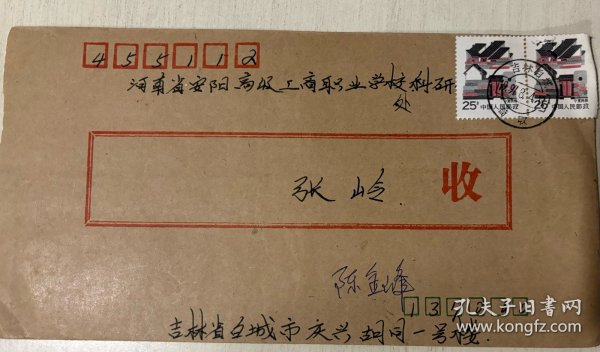 455112
河南省安阳高级工商职业学校科研
处
25分 中国人民邮政
25分 中国人民邮政
张岭
收
陈金峰
吉林省白城市庆兴胡同一号楼
孔夫子旧书网
www.kongfz.com